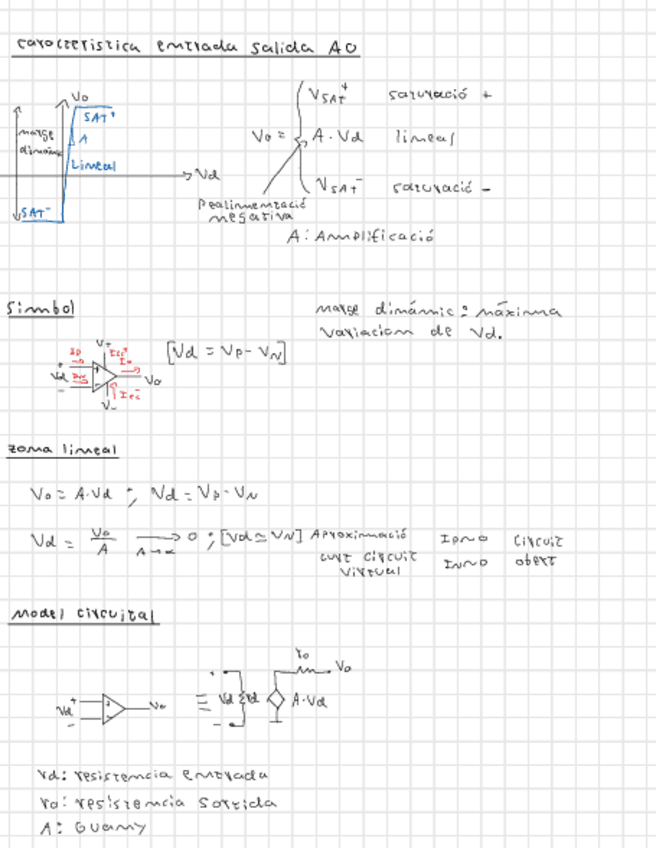 caracteristica entrada salida AO
Vo
SAT+
A
Lineal
marge
dinàmic
SAT-
Vd
Vo =
VSAT+ saturació +
A·Vd lineal
VSAT- saturació -
Realimentació
negativa
A: Amplificació
Simbol
marge dinámic: máxima
variacion de Vd.
V+
Vd
Vo
V-
[Vd = VP - VN]
zona lineal
Vo = A·Vd ; Vd = VP - VN
Vd = Vo/A → 0 ; [Vd ≃ VN] Aproximació
A→∝
curt circuit
virtual
IP≈0 circuit
IN≈0 obert
Model circuital
Vd
Vo
Vd rd
A·Vd
ro
Vo
rd: resistencia entrada
ro: resistencia sortida
A: Guany